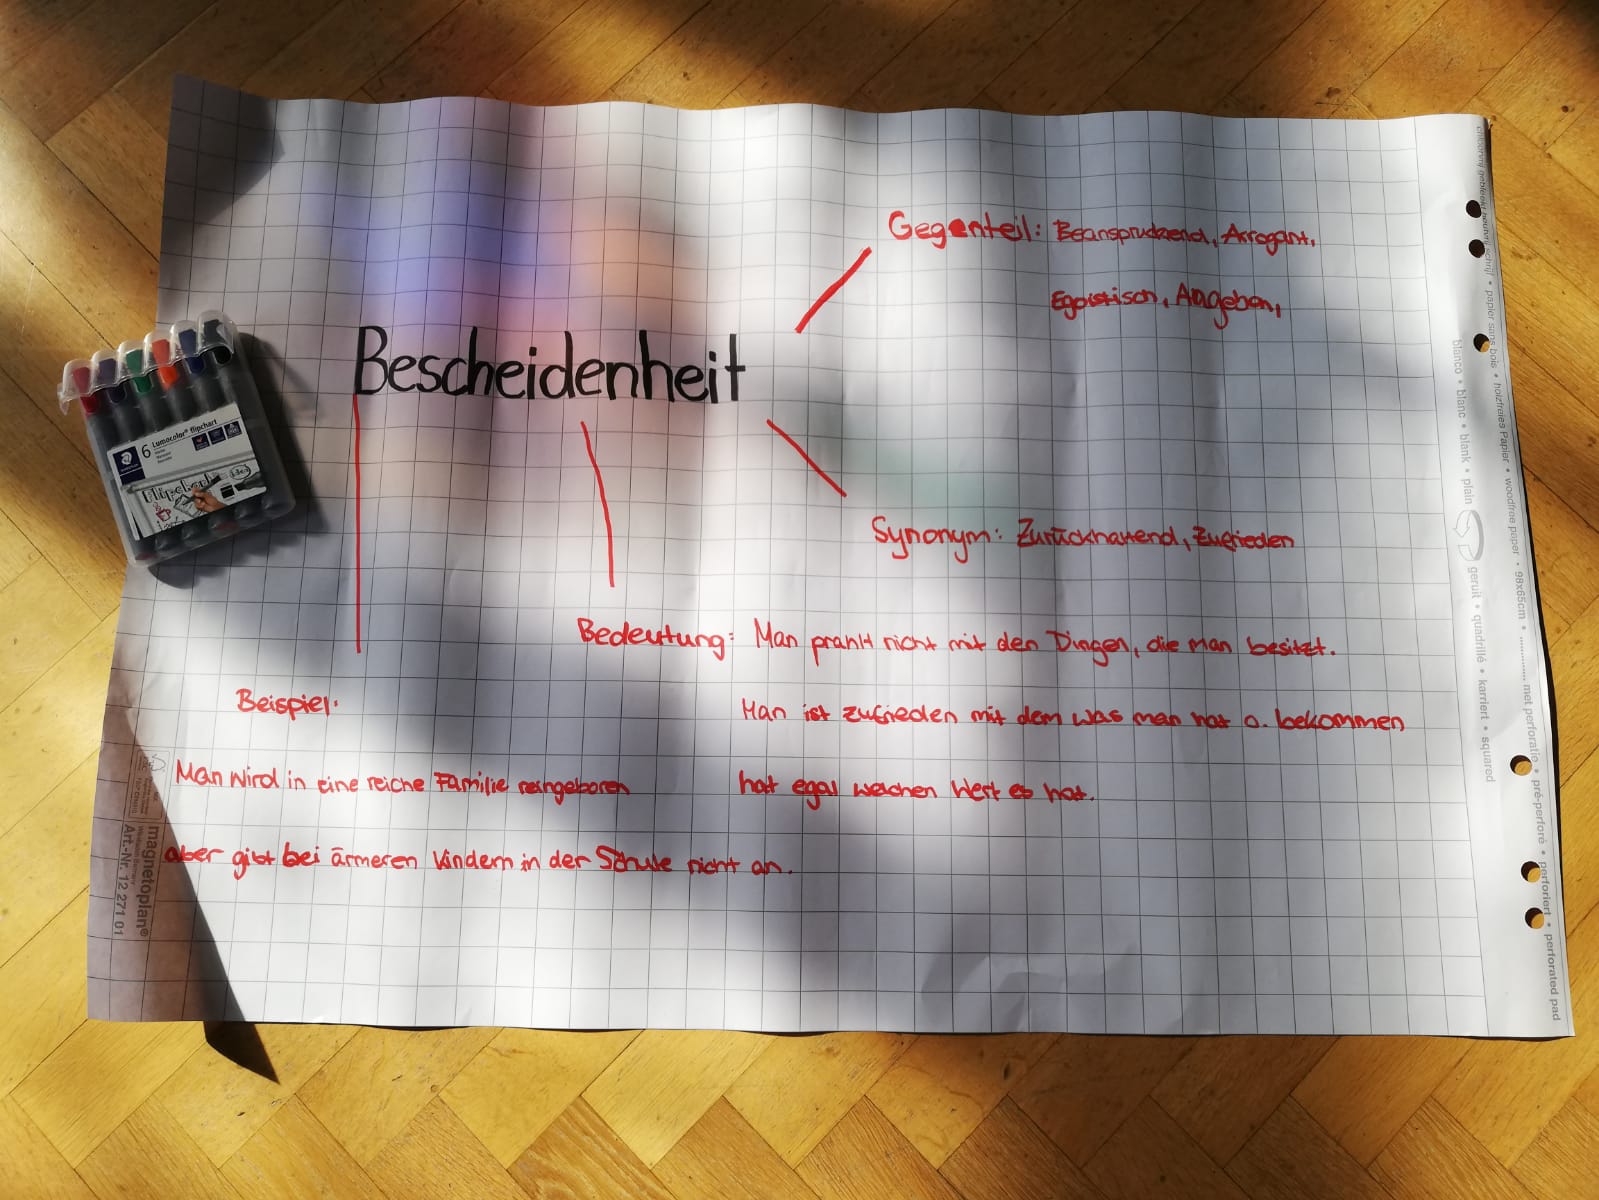 Bescheidenheit
Gegenteil: Beanspruchend, Arrogant,
Egoistisch, Angeben,
Synonym: Zurückhaltend, Zufrieden
Bedeutung: Man prahlt nicht mit den Dingen, die man besitzt.
Man ist zufrieden mit dem was man hat o. bekommen
hat egal welchen Wert es hat.
Beispiel:
Man wird in eine reiche Familie reingeboren
aber gibt bei ärmeren Kindern in der Schule nicht an.
6 Lumocolor® flipchart
STAEDTLER
Flipchart
magnetoplan®
Art.-Nr. 12 271 01
papier sans bois • holzfreies Papier • woodfree paper • 98x65cm •
met perforatie • pré-perforé • perforiert • perforated pad
blanco • blanc • blank • plain
geruit • quadrillé • karriert • squared